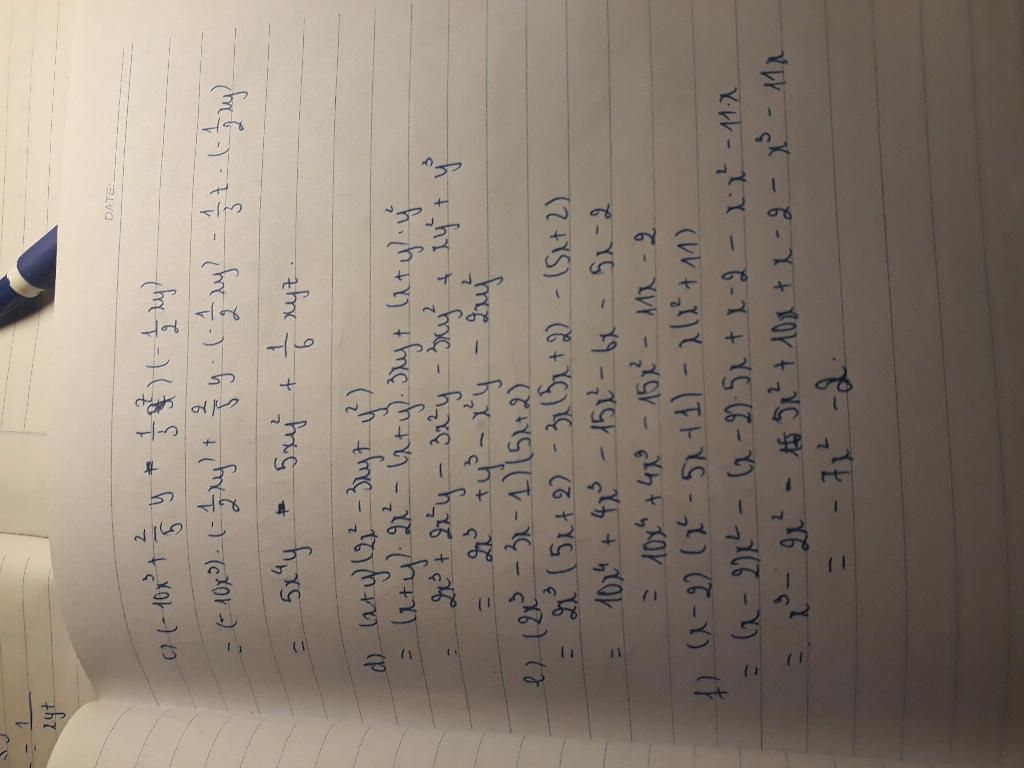 DATE:
c) (-10x³ + 2/5 y - 1/3 z) (-1/2 xy)
= (-10x³) · (-1/2 xy) + 2/5 y · (-1/2 xy) - 1/3 z · (-1/2 xy)
= 5x⁴y - 5xy² + 1/6 xyz.
d) (x+y)(2x² - 3xy + y²)
= (x+y) · 2x² - (x+y) · 3xy + (x+y) · y²
= 2x³ + 2x²y - 3x²y - 3xy² + xy² + y³
= 2x³ + y³ - x²y - 2xy²
e) (2x³ - 3x - 1)(5x+2)
= 2x³ (5x+2) - 3x(5x+2) - (5x+2)
= 10x⁴ + 4x³ - 15x² - 6x - 5x - 2
= 10x⁴ + 4x³ - 15x² - 11x - 2
f) (x-2) (x² - 5x + 1) - x(x² + 11)
= (x-2)x² - (x-2) · 5x + x - 2 - x x² - 11 · x
= x³ - 2x² - 5x² + 10x + x - 2 - x³ - 11x
= -7x² - 2.
= 1/2yz